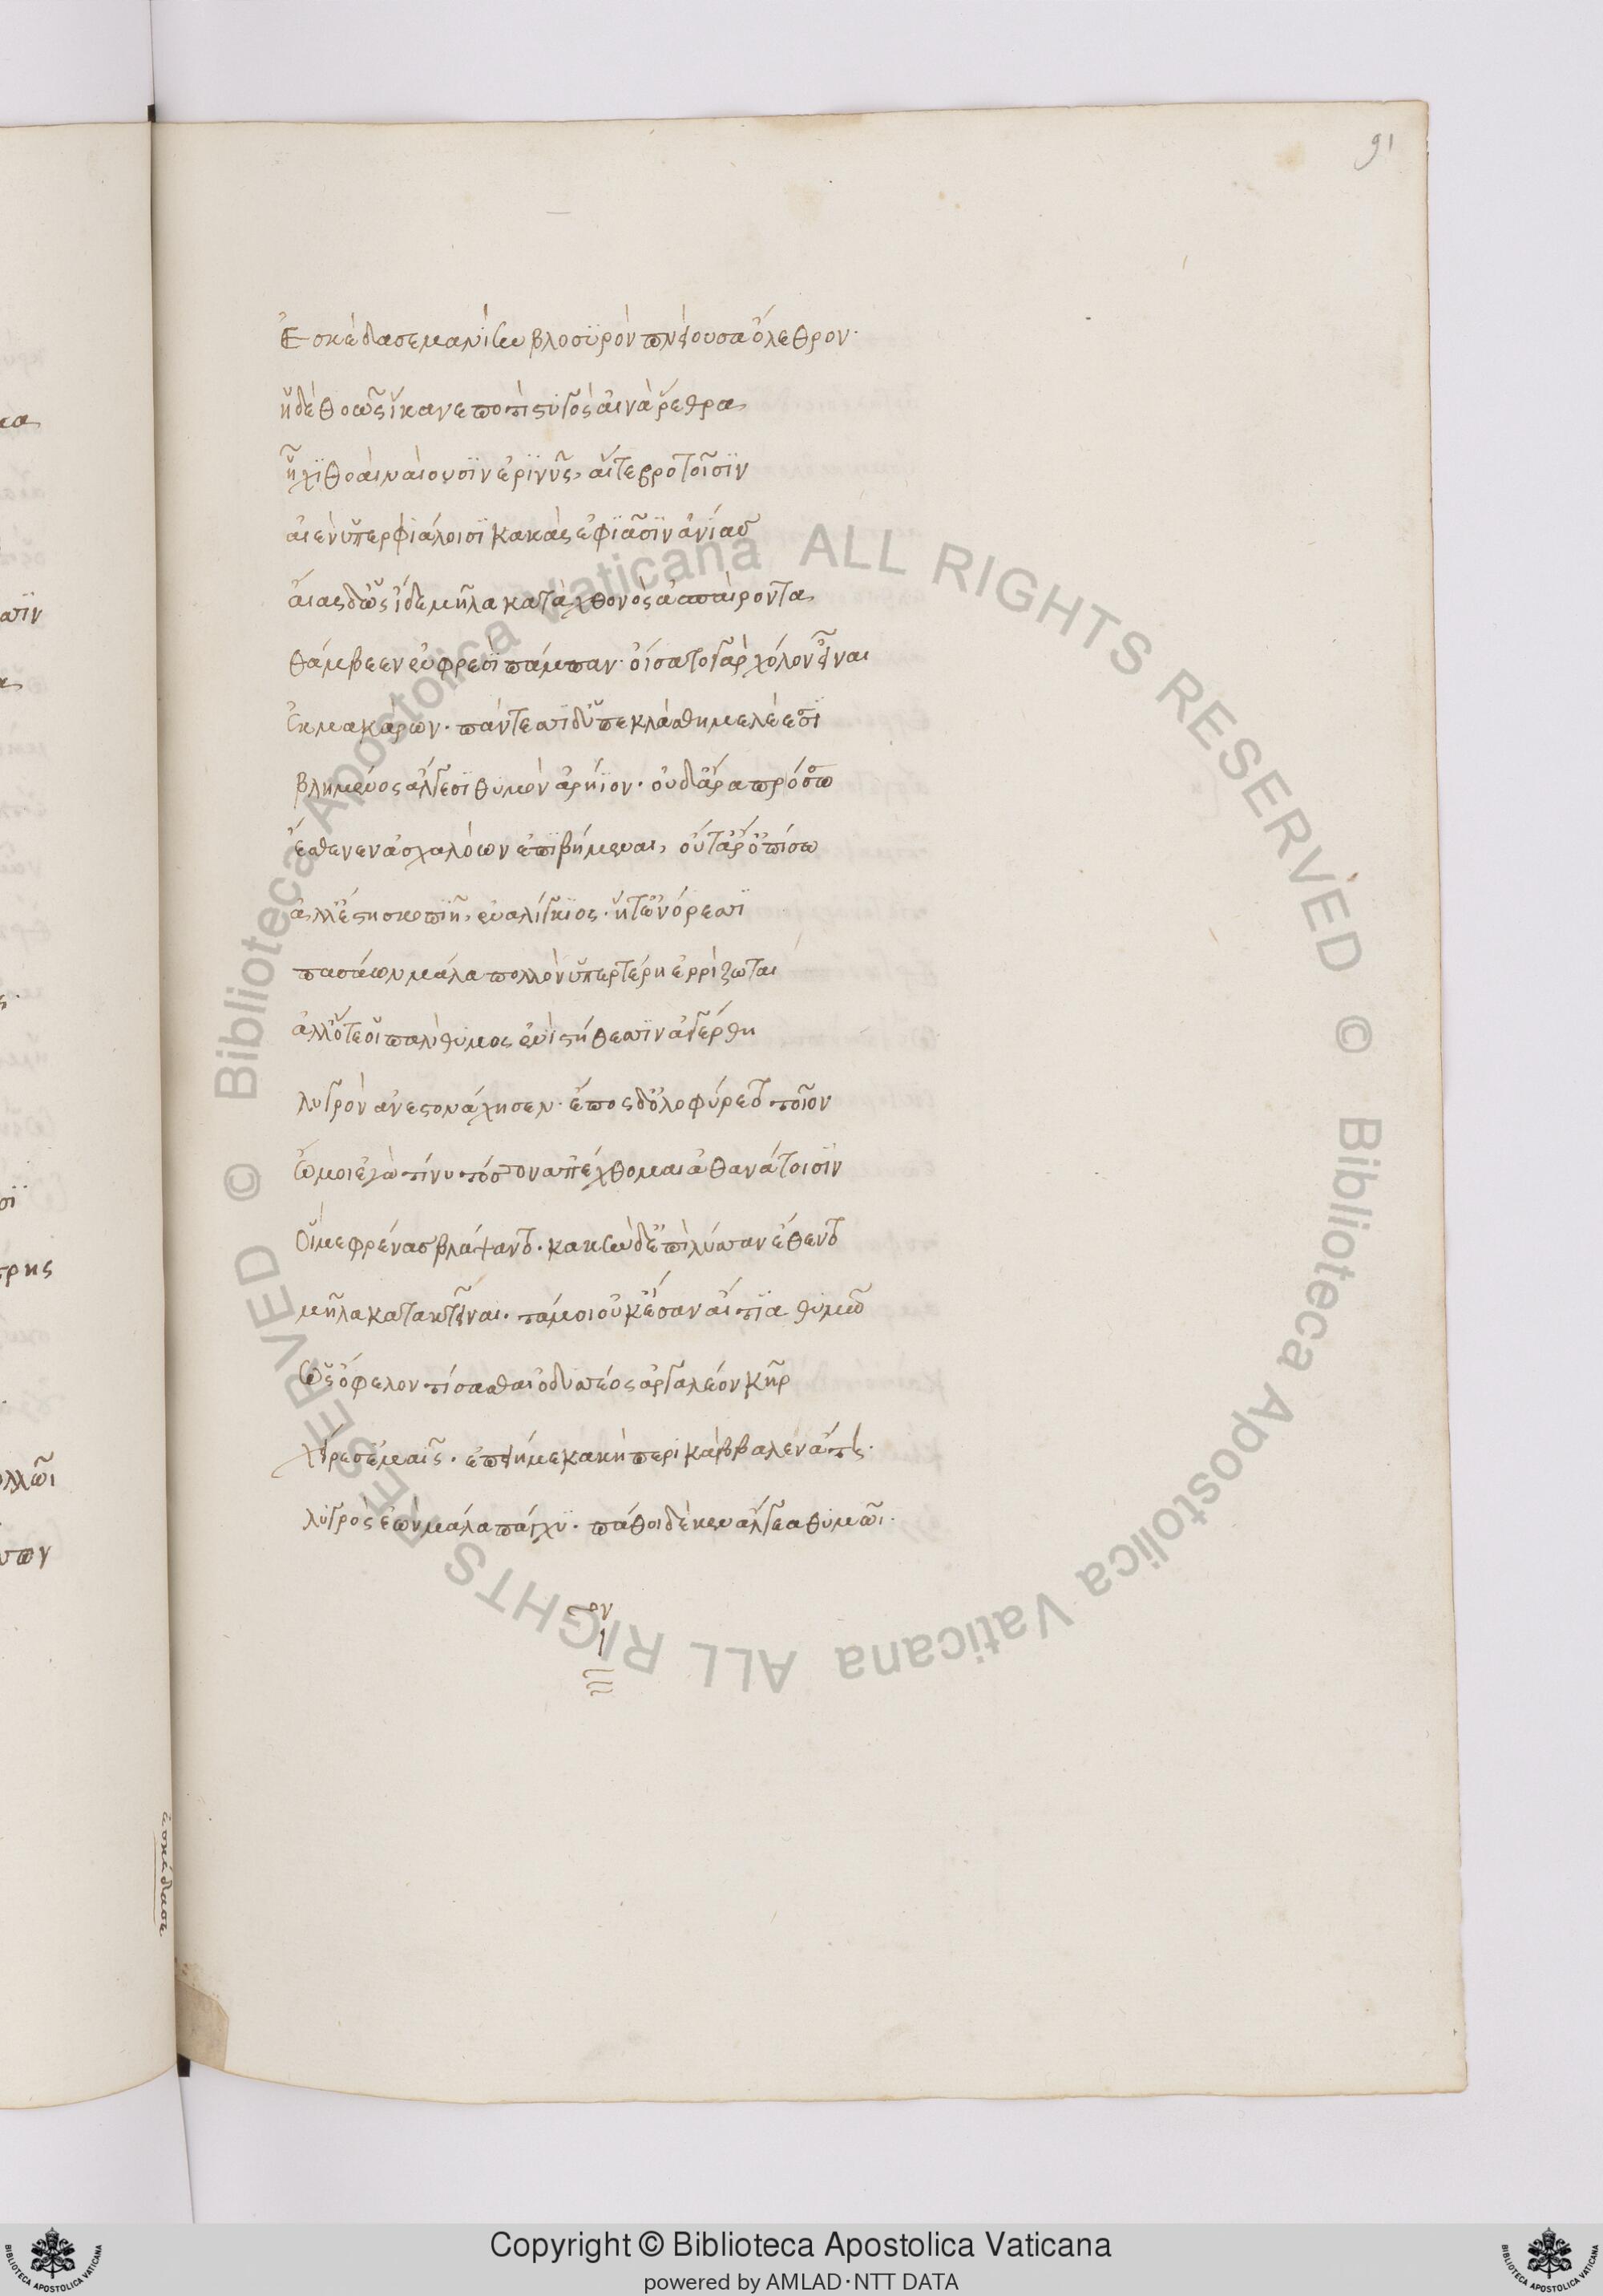 91
Ἐσκέδασε μανίην βλοσυρὸν πνείουσα ὄλεθρον·
ἣ δὲ θοῶς ἵκανε ποτὶ στυγὸς αἰνὰ ῥέεθρα,
ᾗχι θοαὶ ναίουσιν ἐριννῦς, αἵτε βροτοῖσιν
αἰὲν ὑπερφιάλοισι κακὰς ἐφιᾶσιν ἀνίας
αἴας δ' ὡς ἴδε μῆλα κατὰ χθονὸς ἀσπαίροντα,
θάμβεεν ἐν φρεσὶ πάμπαν· οἴσατο γὰρ χόλον εἶναι
ἐκ μακάρων· πάντεσσι δ' ὑπεκλάσθη μελέεσσι
βλήμενος ἄλγεσι θυμὸν ἀρήιον· οὐδ' ἄρα πρόσσω
ἔσθενεν ἀσχαλόων ἐπιβήμεναι, οὔτ' ἄρ' ὀπίσω
ἀλλ' ἔστη σκοπιῇ, ἐναλίγκιος· ἥ τ' ἐν ὄρεσσι
πασάων μάλα πολλὸν ὑπερτέρη ἐρρίζωται
ἀλλ' ὅτε οἱ παλὶ θυμὸς ἐνὶ στήθεσσιν ἀγέρθη
λυγρὸν ἀνεστονάχησεν· ἔπος δ' ὀλοφύρετο τοῖον
ὤμοι ἐγὼ τί νυ τόσσον ἀπέχθομαι ἀθανάτοισιν
οἵ με φρένας βλάψαντο· κακὴν δ' ἐπὶ λύσσαν ἔθεντο
μῆλα κατακτεῖναι· τά μοι οὐκ ἔσαν αἴτια θυμοῦ
ὡς ὄφελον τίσασθαι ὀδυσσέος ἀργαλέον κῆρ
χείρεσ' ἐμαῖς· ἐπεὶ ἦ με κακὴ περικάββαλεν ἄτη·
λυγρὸς ἐὼν μάλα πάγχυ· πάθοι δέ κεν ἄλγεα θυμῶι·
ἐσκέδασε